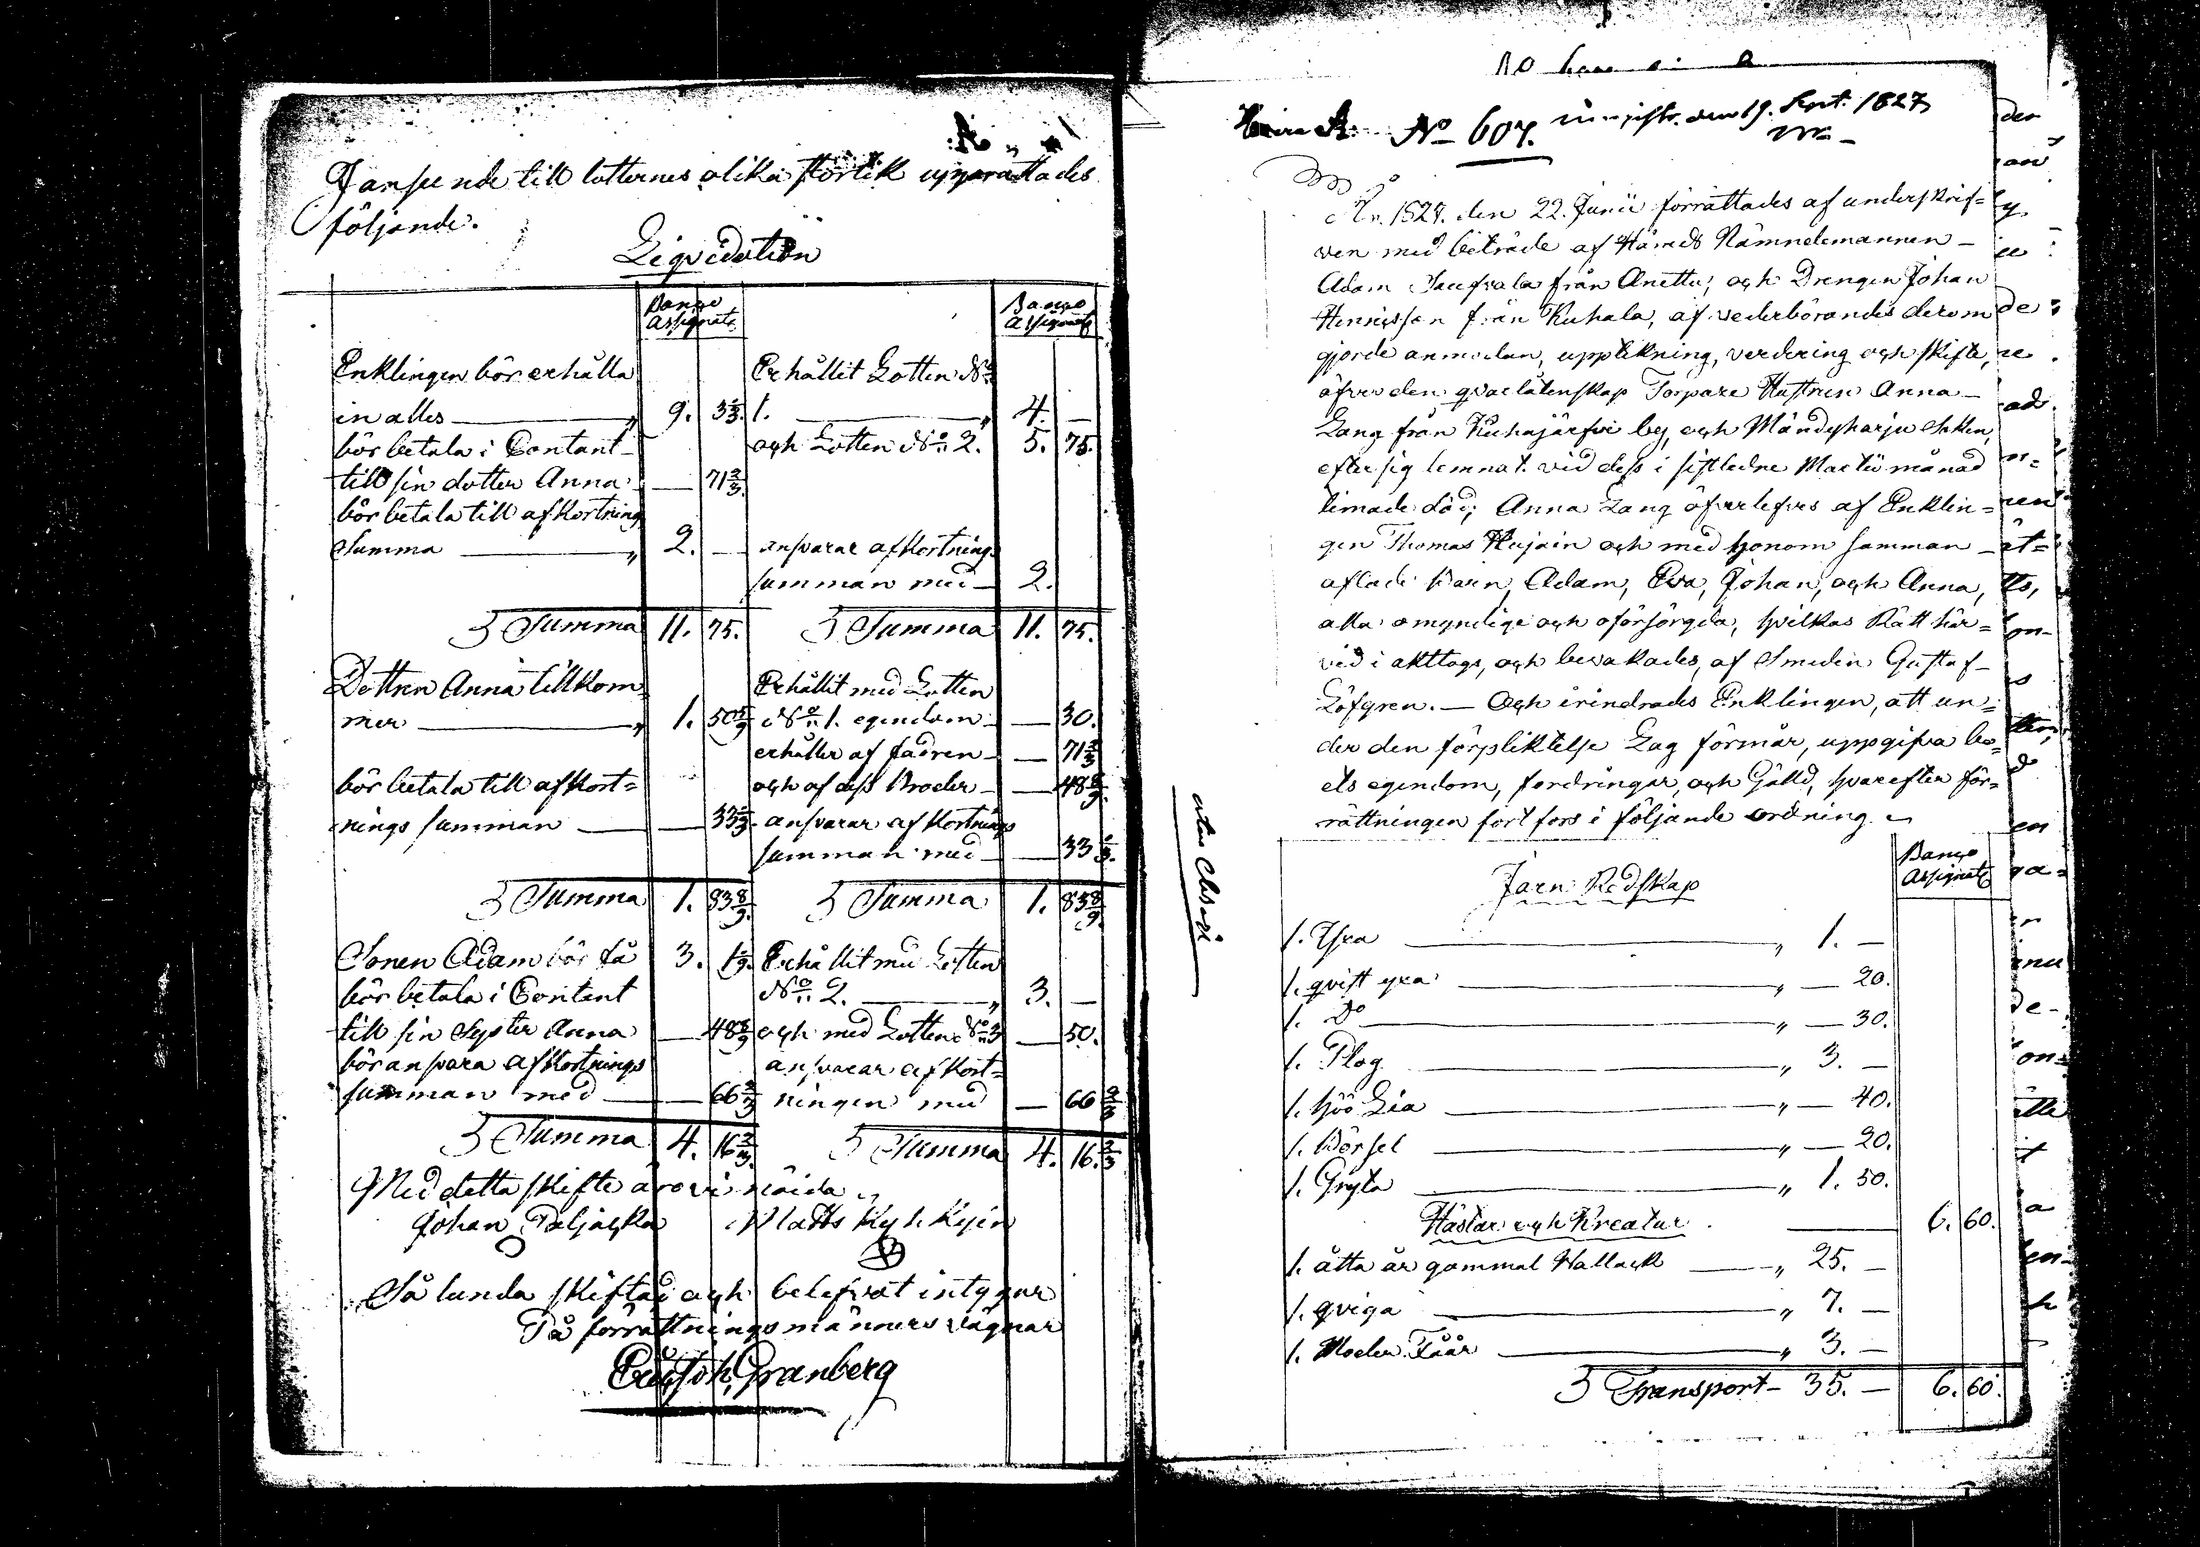 I anseende till lotternes olika storlek upprättades
följande.
Liqvidation
Banco
Assignats
Banco
Assignats
Enklingen bör erhålla
in alles — „ 9. 3 1/3.
bör betala i Contant
till sin dotter Anna — 71 2/3.
bör betala till afkortning
Summa — „ 2. —
Erhållit Lotten No
1. — „ 4. —
och Lotten No 2. 5. 75.
ansvarar afkortnings
summan med — 2.
Summa 11. 75.
Summa 11. 75.
Dottren Anna tillkom
mer — „ 1. 50 5/9
bör betala till afkort=
nings summan — 33 1/3.
Erhållit med Lotten
No 1. egendom — 30.
erhåller af fadren — 71 2/3
och af dess Broder — 48 8/9.
ansvarar afkortnings
summan med — 33 1/3.
Summa 1. 83 8/9.
Summa 1. 83 8/9.
Sonen Adam bör få 3. 1 1/9.
bör betala i Contant
till sin Syster Anna — 48 8/9
bör ansvara afkortnings
summan med — 66 2/3
Erhållit med Lotten
No 2. — „ 3. —
och med Lotten No 3 — 50.
ansvarar afkort=
ningen med — 66 2/3
Summa 4. 16 2/3.
Summa 4. 16. 2/3
Med detta skifte äro vi nöida „
Johan Paljacka Matts Kyhkyin
Så lunda skiftad och belefvat intygar
På förrättningsmänners vägnar
Granberg
No 607. den 19. Sept. 1827
År 1827. den 22. Junii förrättades af underskrif=
ven med biträde af Härads Nämndemannen —
Adam från Anettu, och Drengen Johan
Hennisson från Kuhala, af vederbörandes derom
gjorde anmodan, uppteckning, verdering och skifte,
öfver den qvarlåtenskap Torpare Hustrun Anna —
Lang från Kuhajärfvi by, och Mändyharju Sokken,
efter sig lemnat vid dess i sistledne Martii månad
timade död; Anna Lang öfverlefves af Enklin=
gen Thomas Hujain och med honom samman —
aflade Barn, Adam, Eva, Johan, och Anna,
alla omyndige och oförsörgda, hvilkas Rätt här=
vid i akttogs, och bevakades, af Smeden Gustaf —
Löfgren. — Och erindrades Enklingen, att un=
der den förpliktelse Lag förmår, uppgifva bo=
ets egendom, fordringar, och Gälld, hvarefter för=
rättningen fortfors i följande ordning.
Banco
Assignats
Järn Redskap
1. Yxa — „ 1. —
1. qvist yxa — „ — 20.
1. Do — „ — 30.
1. Plog — „ 3. —
1. höö Lia — „ — 40.
1. Börsel — „ — 20.
1. Gryta — „ 1. 50.
6. 60.
Hästar och Kreatur
1. åtta år gammal Wallack — „ 25. —
1. qviga — „ 7. —
1. Moder Fåår — „ 3. —
Transport — 35. — 6. 60.